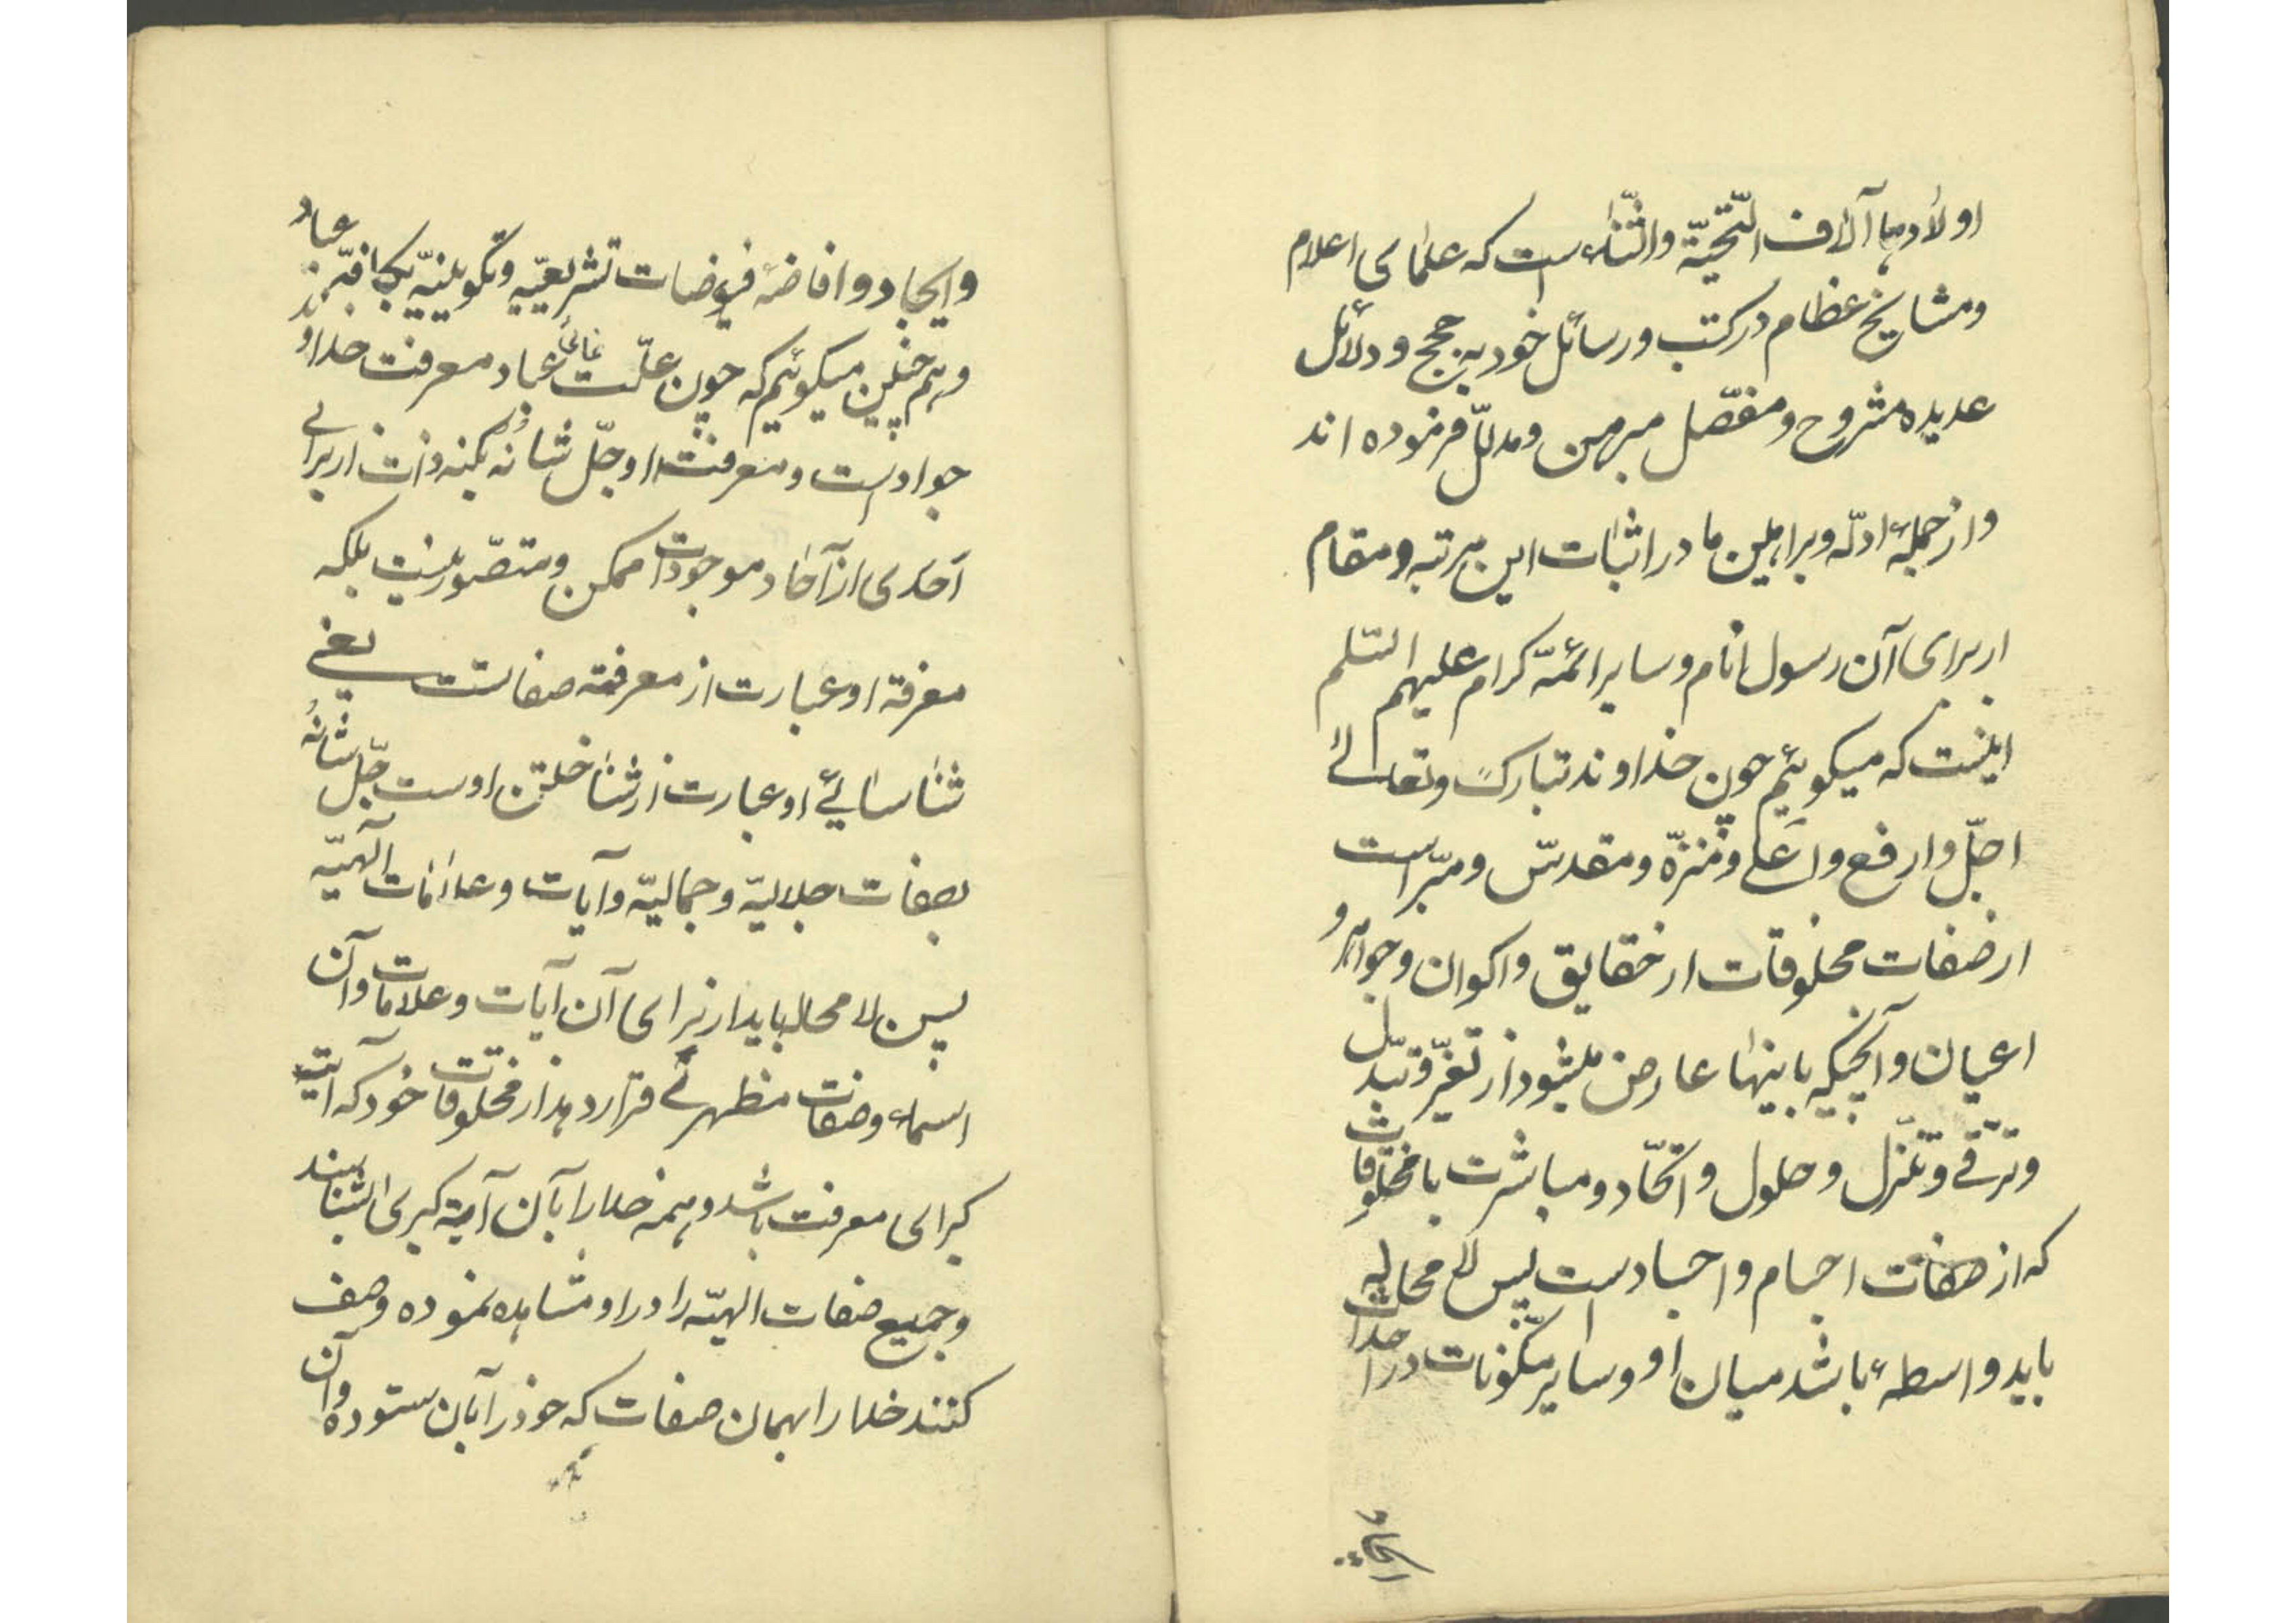 اولادها آلاف التّحیّة والثّناء است که علمای اعلام
ومشایخ عظام در کتب ورسائل خود به حجج و دلائل
عدیده مشروح ومفصّل مبرهن ومدلّل فرموده اند
واز جملهٔ ادلّه وبراهین ما در اثبات این مرتبه ومقام
از برای آن رسول انام وسایر ائمّه کرام علیهم السّلم
اینست که میگوئیم چون خداوند تبارک وتعالی
اجلّ وارفع واعلی ومنزّه ومقدّس ومبرّاست
از صفات مخلوقات از حقایق واکوان وجواهر و
اعیان وآنچیکه باینها عارض میشود از تغیّر وتبدّل
وترقّی وتنزّل وحلول واتّحاد ومباشرت با مخلوقات
که از صفات اجسام واجساد است پس لا محاله
باید واسطهٔ باشد میان او وسایر مکوّنات در احداث
وایجاد وافاضهٔ فیوضات تشریعیّه وتکوینیّه بکافّهٔ عباد
وهم چنین میگوئیم که چون علّت غائی عباد معرفت خداوند
جواد است ومعرفت او جلّ شأنه بکنه ذات از برای
اَحَدی از آحاد موجودات ممکن ومتصّور نیست بلکه
معرفة او عبارت از معرفة صفاتست یعنی
شناسائی او عبارت از شناختن اوست جلّ شأنهُ
بصفات جلالیّه وجمالیّه وآیات وعلامات الهیّه
پس لا محاله باید از برای آن آیات وعلامات وآن
اسماء وصفات مظهری قرار دهد از مخلوقات خود که آیة
کبرای معرفت باشد وهمه خدا را بآن آیة کبری بشناسند
وجمیع صفات الهیّه را در او مشاهده نموده وصف
کنند خدا را بهمان صفات که خود را بآن ستوده وآن